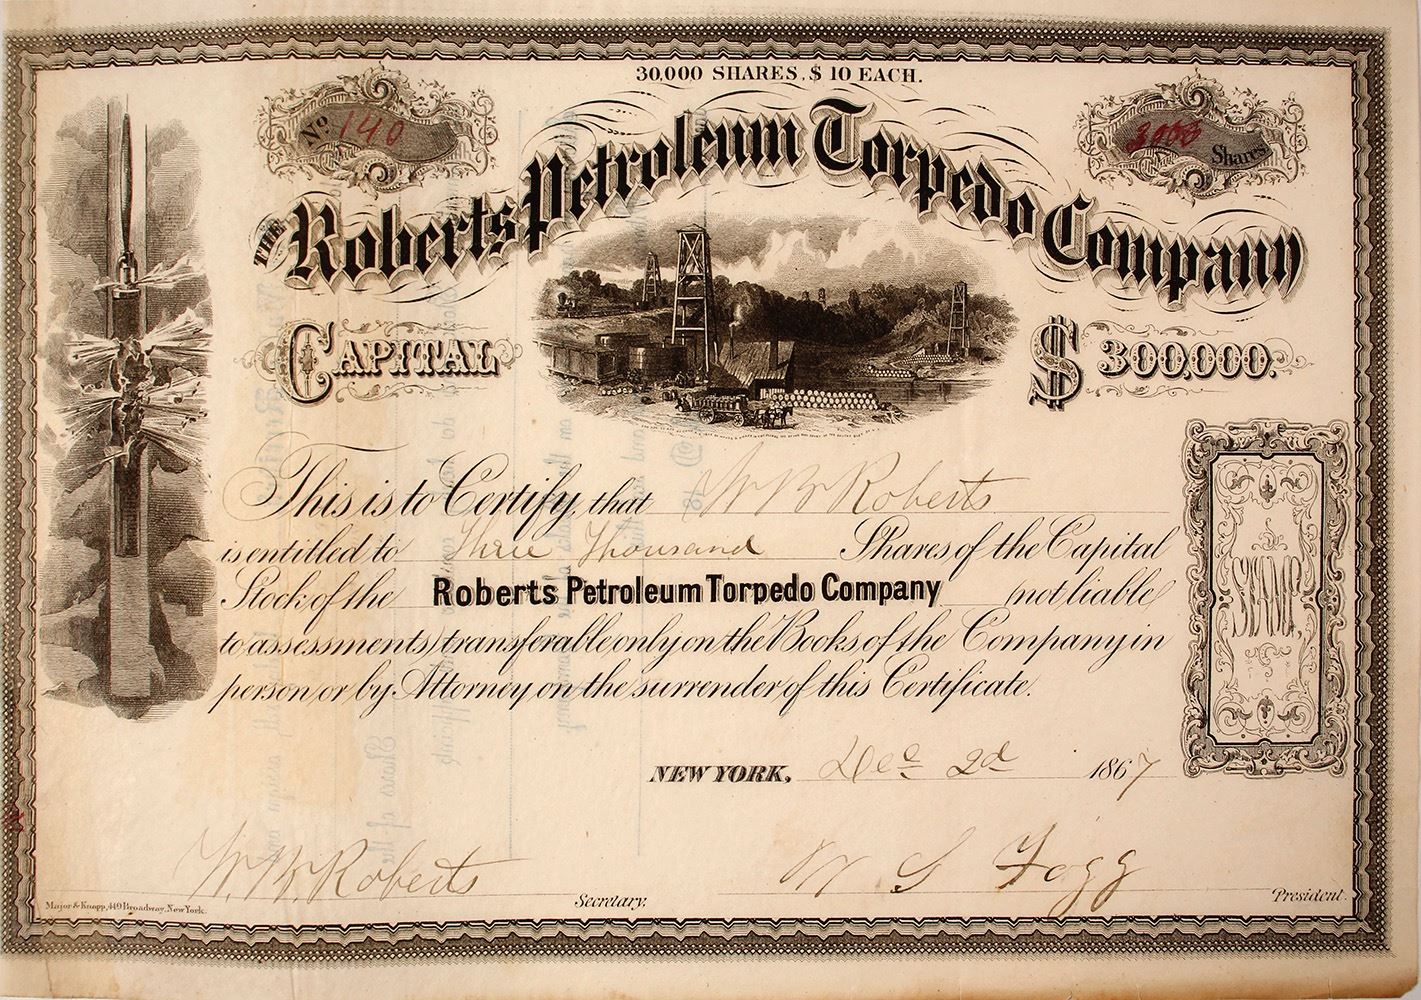 30,000 SHARES. $ 10 EACH.
No 140
3000 Shares
THE Roberts Petroleum Torpedo Company
CAPITAL $ 300,000.
This is to Certify, that W B Roberts
is entitled to Three Thousand Shares of the Capital
Stock of the Roberts Petroleum Torpedo Company not liable
to assessments, transferable only on the Books of the Company in
person or by Attorney on the surrender of this Certificate.
STAMP,
NEW YORK, Dec 2d 1867
W. B. Roberts Secretary.
W S Fogg President.
Major & Knapp, 449 Broadway, New York.